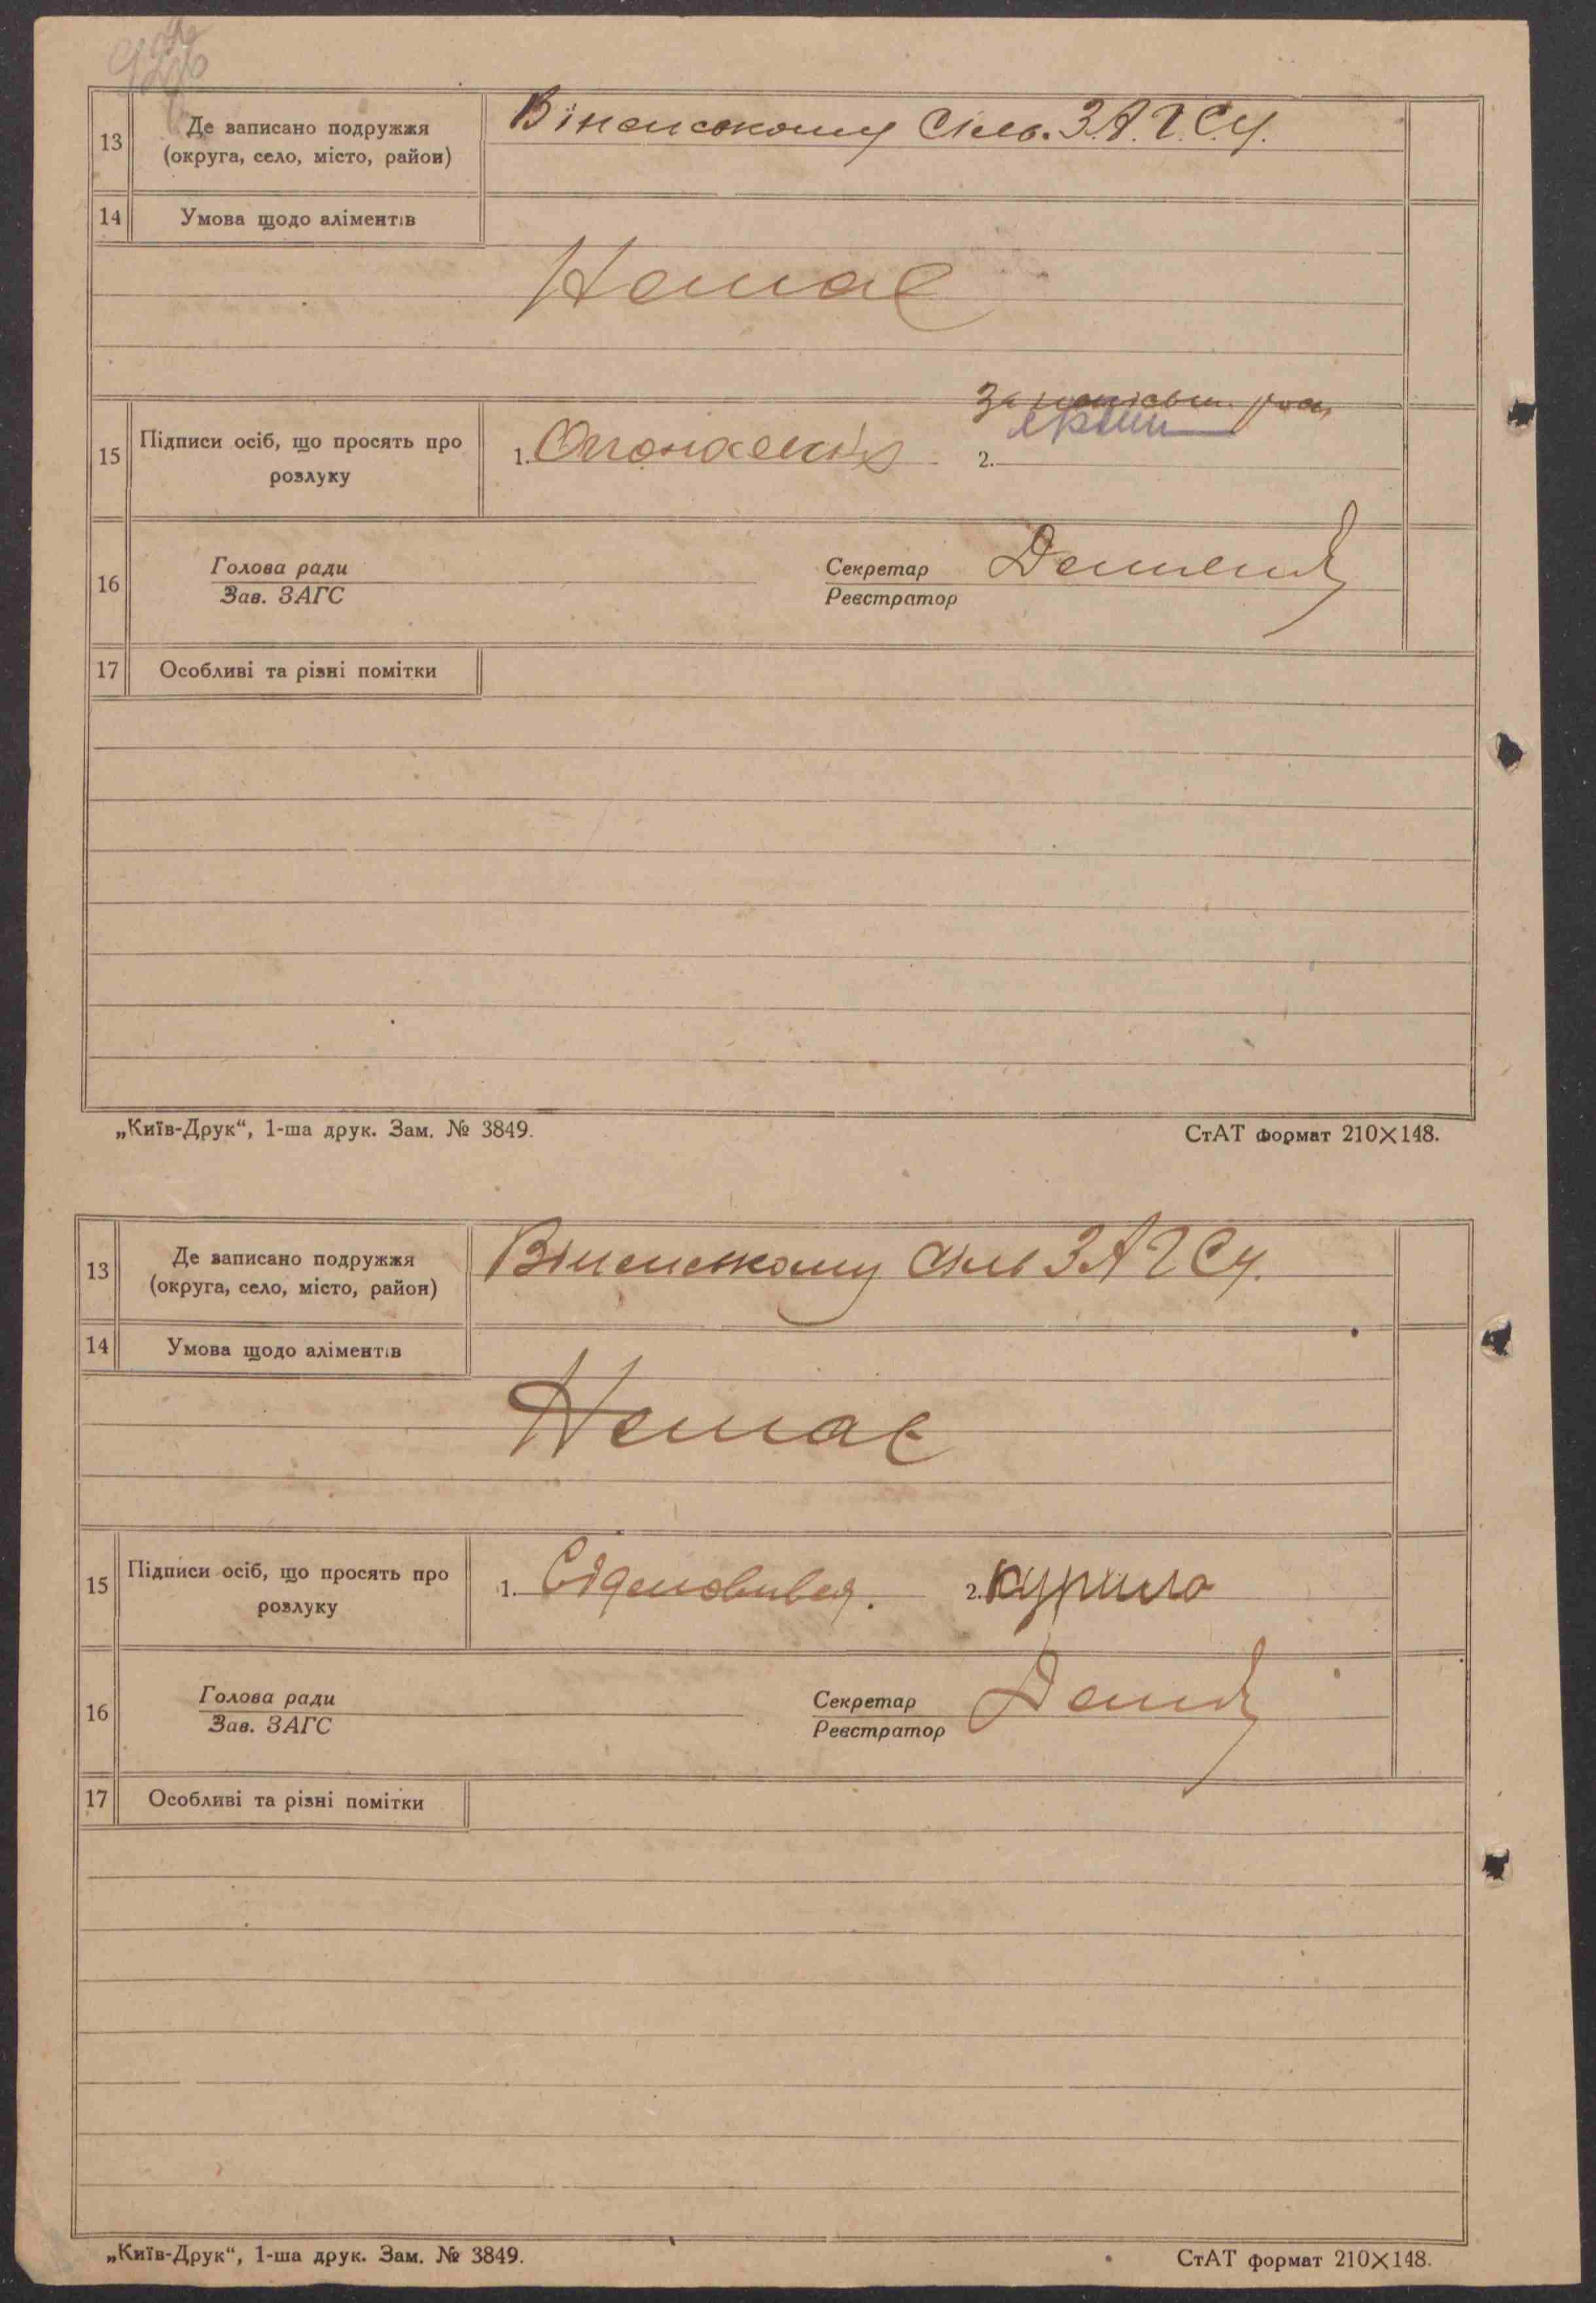 13
Де записано подружжя
(округа, село, місто, район)
Сіль. З.А.Г.С.У.
14
Умова щодо аліментів
Немає
15
Підписи осіб, що просять про
розлуку
1.
2.
16
Голова ради
Зав. ЗАГС
Секретар
Реєстратор
17
Особливі та різні помітки
„Київ-Друк“, 1-ша друк. Зам. № 3849.
СтАТ формат 210×148.
13
Де записано подружжя
(округа, село, місто, район)
Сіль З А Г С У.
14
Умова щодо аліментів
Немає
15
Підписи осіб, що просять про
розлуку
1.
2. Курило
16
Голова ради
Зав. ЗАГС
Секретар
Реєстратор
17
Особливі та різні помітки
„Київ-Друк“, 1-ша друк. Зам. № 3849.
СтАТ формат 210×148.